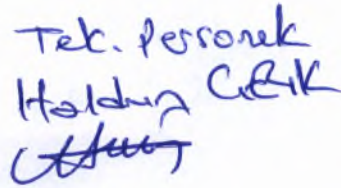 Tek. Personek
Haldun ÇELİK